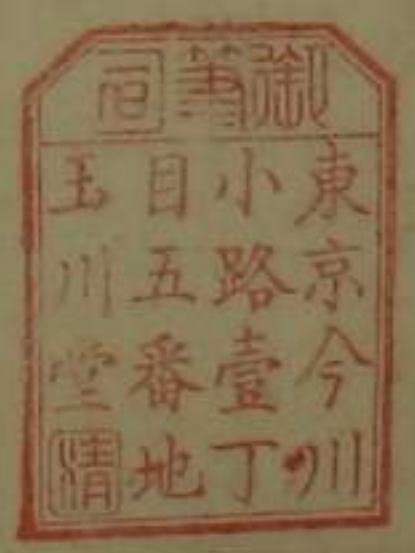 御筆司
東京今川
小路壹丁
目五番地
玉川堂清